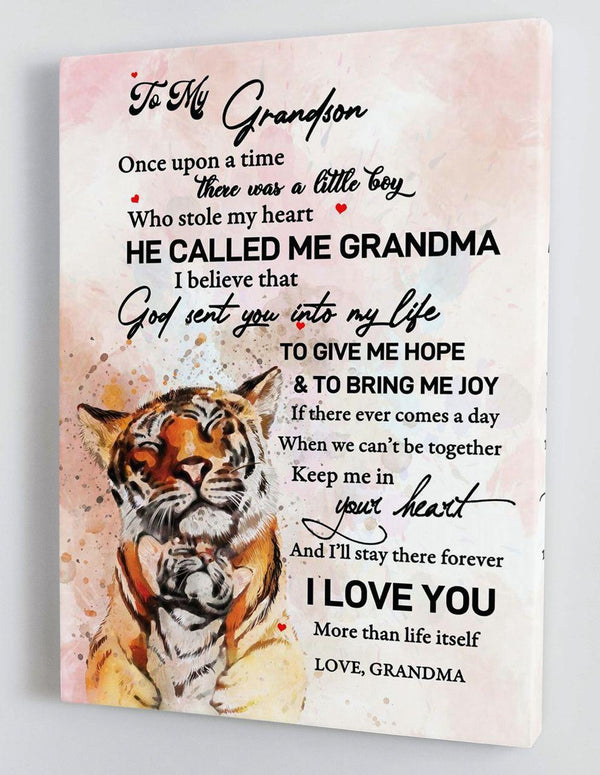 To My Grandson
Once upon a time
there was a little boy
Who stole my heart
HE CALLED ME GRANDMA
I believe that
God sent you into my life
TO GIVE ME HOPE
& TO BRING ME JOY
If there ever comes a day
When we can't be together
Keep me in
your heart
And I'll stay there forever
I LOVE YOU
More than life itself
LOVE, GRANDMA